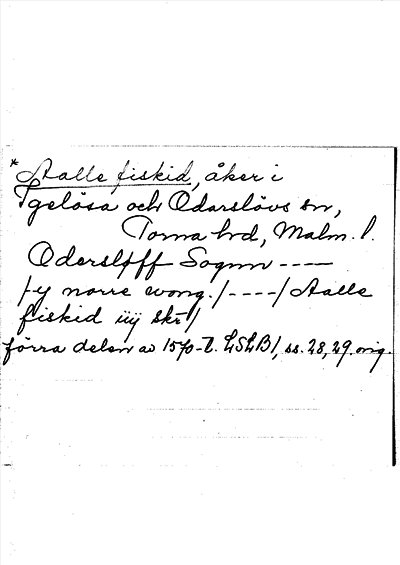 *Aalle fiskid, åker i
Igelösa och Odarslövs sn,
Torna hd, Malm. l.
Odersløff Sognn ----
/-y norre wong./----/Aalle
fiskid iiij skr/
förra delen av 1570-t. LSLB1, ss. 28, 29. orig.